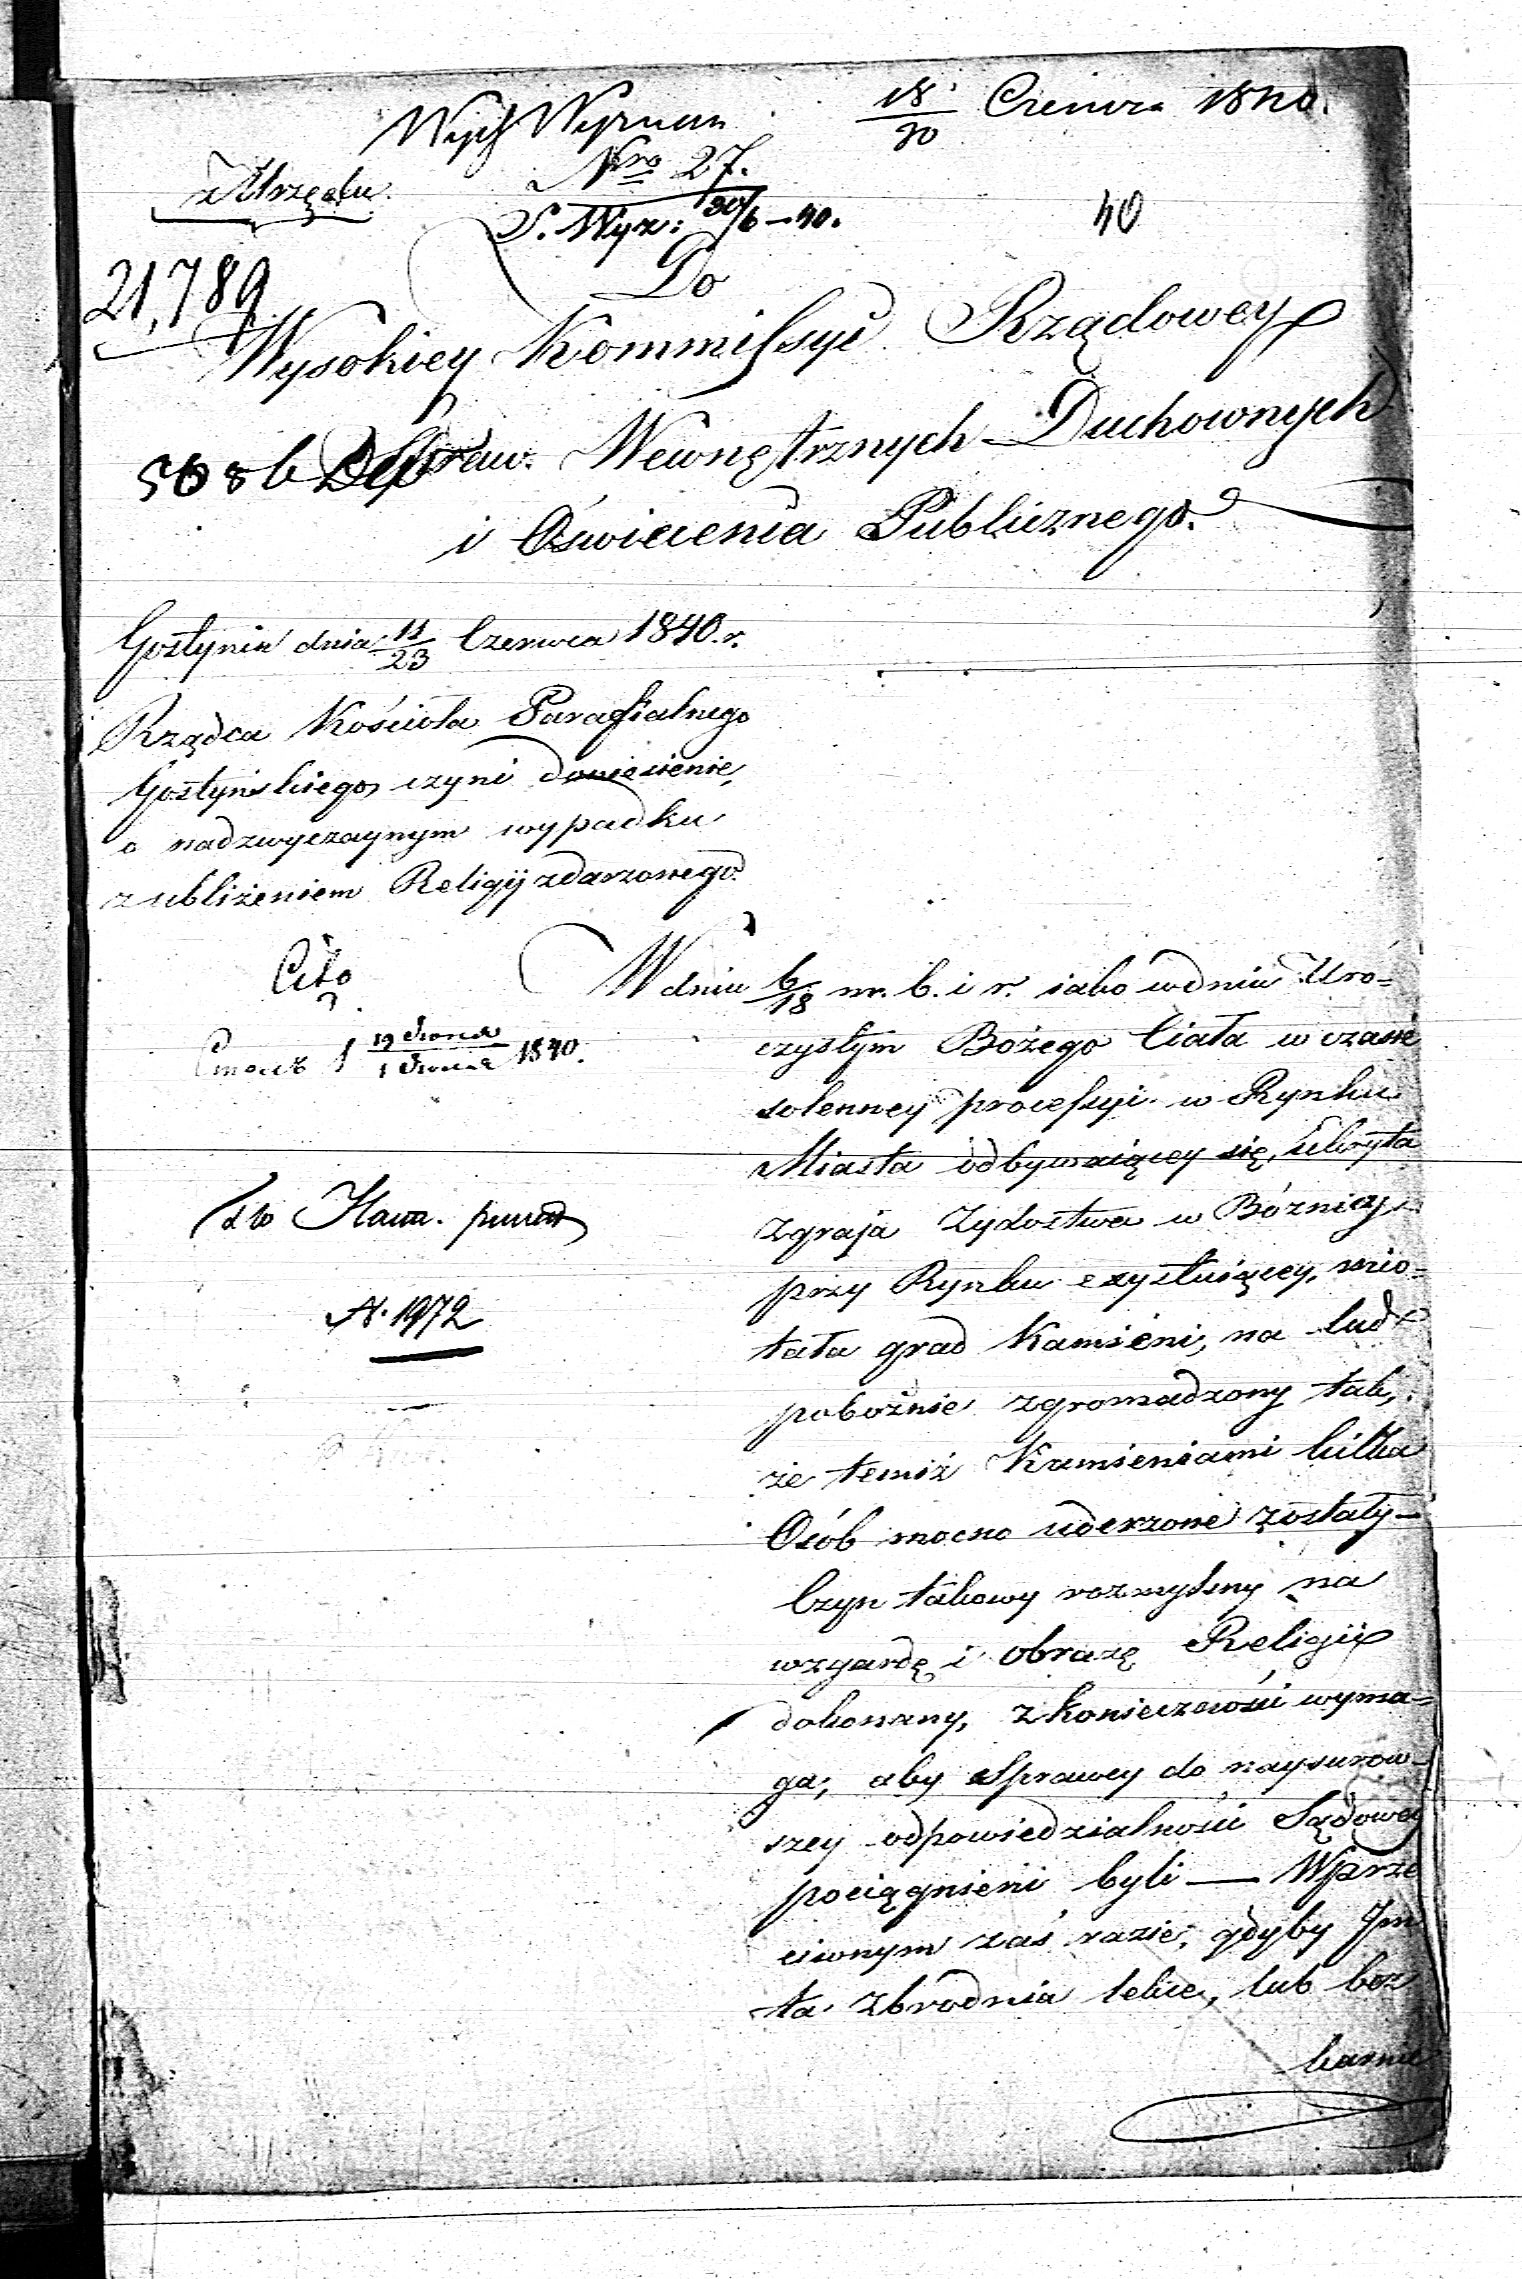 18/30 Czerwca 1840.
Wydz Wyznan
Nro 27.
z Urzędu.
S. Wyzn: 30/6 – 40.
40
Do
21,789
Wysokiey Kommissyi Rządowey
Spraw. Wewnętrznych Duchownych
i Oświecenia Publicznego.
Gostynin dnia 11/23 Czerwca 1840. r.
Rządca Kościoła Parafialnego
Gostyńskiego, czyni doniesienie,
o nadzwyczaynym wypadku
z ubliżeniem Religij zdarzonego.
Cito
W dniu 6/18 m. b. i r. iako w dniu Uro=
czystym Bożego Ciała w czasie
solenney processyi w Rynku
Miasta odbywaiącey się, ukryta
Zgraja Żydostwa w Bóżnicy
przy Rynku exystuiącey, mio=
tała grad Kamieni, na lud
pobożnie zgromadzony tak,
że temiż Kamieniami kilka
Osób mocno uderzone zostały –
Czyn takowy rozmyślny na
wzgardę i obrazę Religii
dokonany, z konieczności wyma=
ga, aby Sprawcy do naysurow=
szey odpowiedzialności Sądowey
pociągnieni byli — W prze
ciwnym zaś razie, gdyby
ta Zbrodnia lekce, lub bez
karnie
1840.
N. 1972